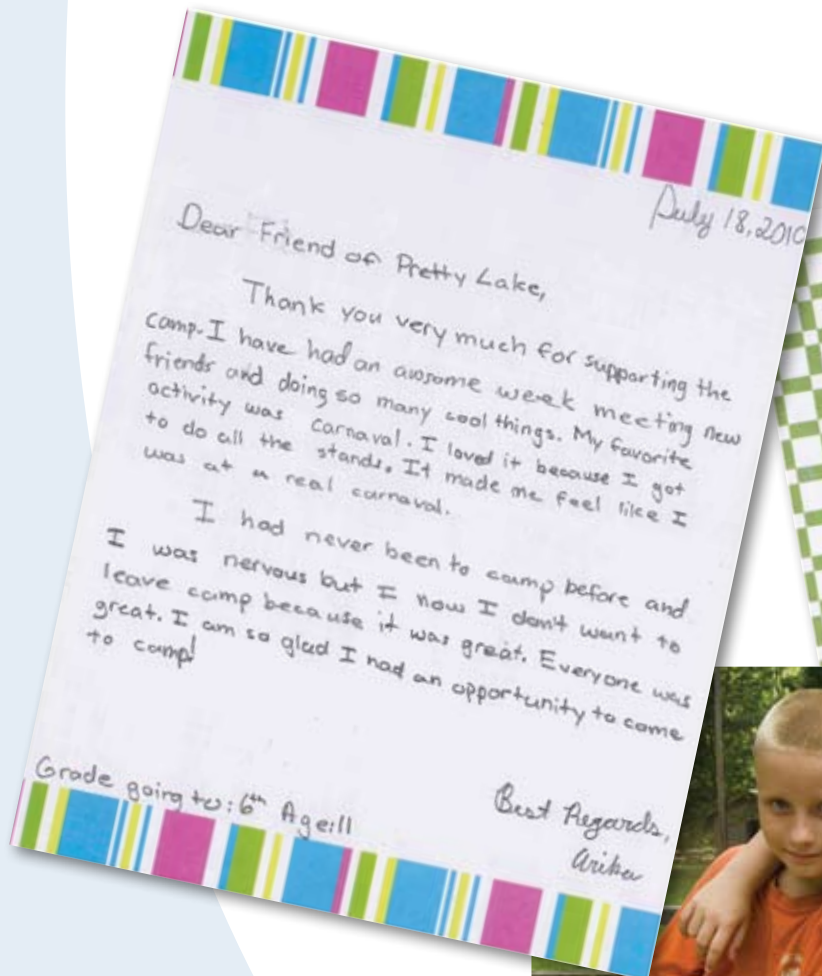 July 18, 2010
Dear Friend of Pretty Lake,
Thank you very much for supporting the
camp. I have had an awsome week meeting new
friends and doing so many cool things. My favorite
activity was carnaval. I loved it because I got
to do all the stands. It made me feel like I
was at a real carnaval.
I had never been to camp before and
I was nervous but I now I don't want to
leave camp because it was great. Everyone was
great. I am so glad I had an opportunity to come
to camp!
Best Regards,
Arika
Grade going to: 6th Age: 11